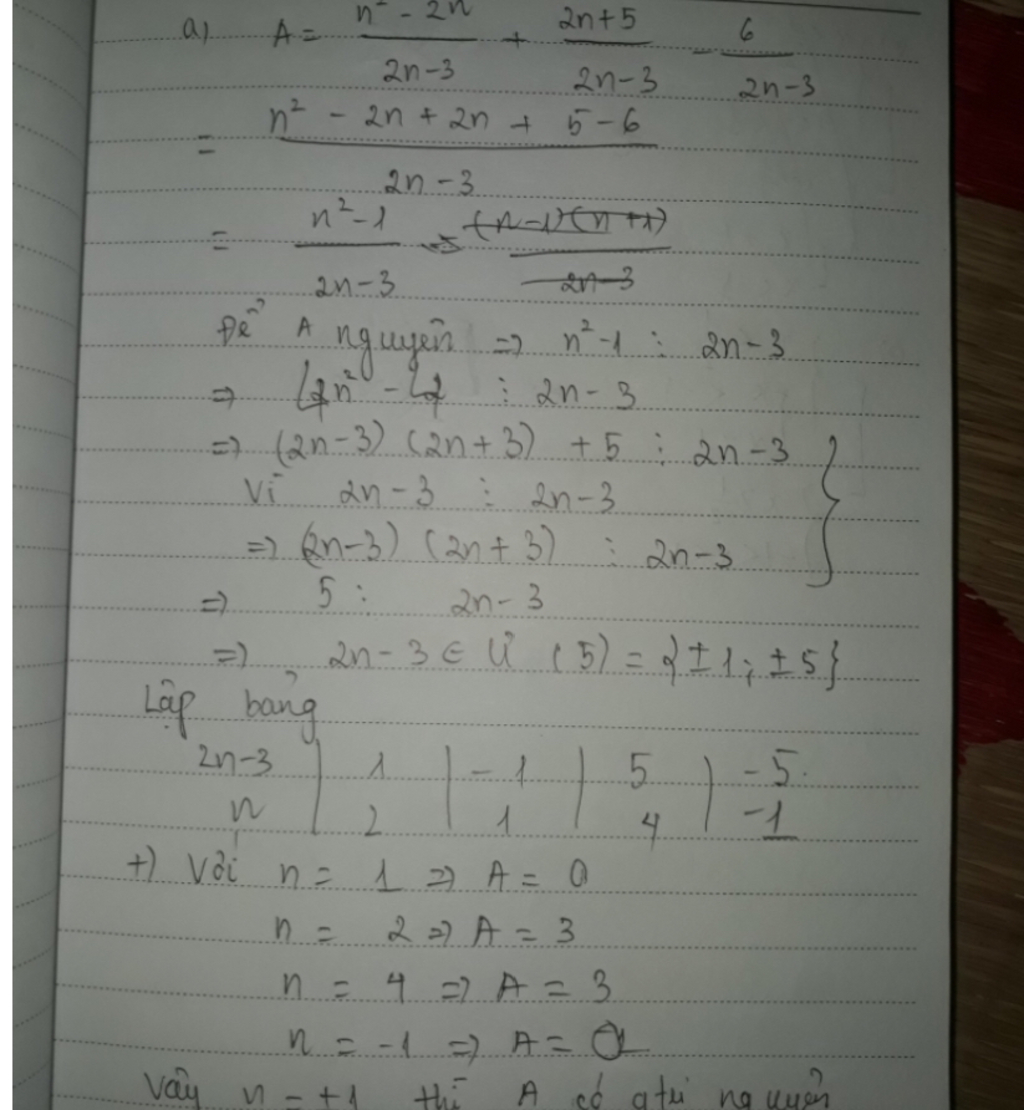 a) A = n² - 2n / 2n-3 + 2n+5 / 2n-3 - 6 / 2n-3
= n² - 2n + 2n + 5 - 6 / 2n-3
= n²-1 / 2n-3 = (n-1)(n+1) / 2n-3
Để A nguyên => n²-1 ⋮ 2n-3
=> 4n² - 4 ⋮ 2n-3
=> (2n-3) (2n+3) + 5 ⋮ 2n-3
Vì 2n-3 ⋮ 2n-3
=> (2n-3) (2n+3) ⋮ 2n-3
=> 5 ⋮ 2n-3
=> 2n-3 ∈ Ư (5) = {±1; ±5}
Lập bảng
2n-3 | 1 | -1 | 5 | -5
n | 2 | 1 | 4 | -1
+) Với n = 1 => A = 0
n = 2 => A = 3
n = 4 => A = 3
n = -1 => A = 0
Vậy n = ±1 thì A có gtrị nguyên